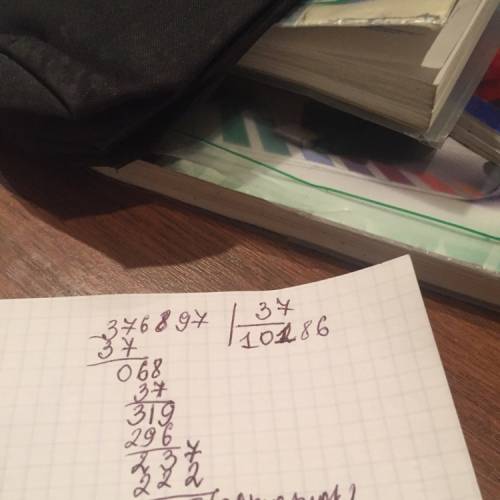 376897 | 37
37 10186
068
37
319
296
237
222